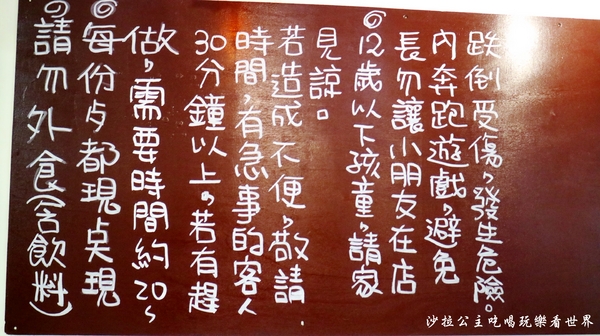 ◎請勿外食含飲料)
◎每份歺都現点現
做，需要時間約20~
30分鐘以上。若有趕
時間，有急事的客人
若造成不便，敬請
見諒。
◎12歲以下孩童，請家
長勿讓小朋友在店
內奔跑遊戲，避免
跌倒受傷，發生危險。
沙拉公主吃喝玩樂看世界